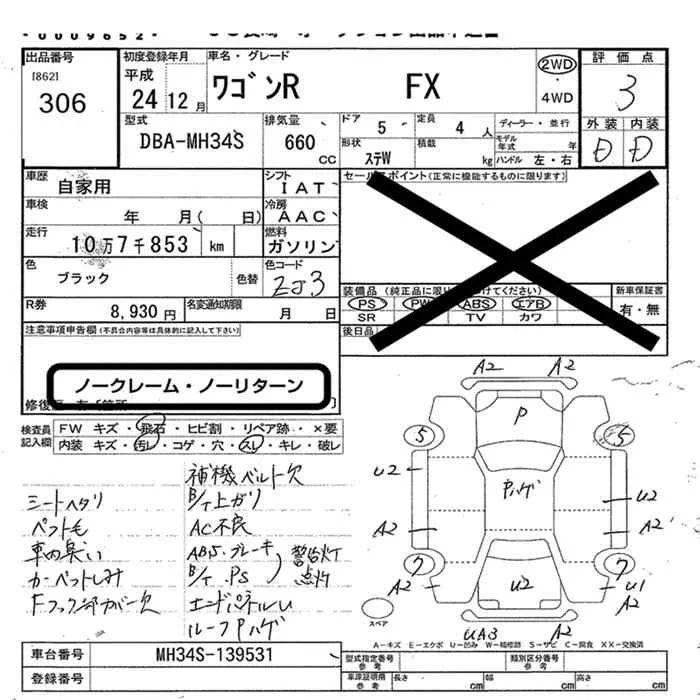 出品番号
[862]
306
初度登録年月
平成
24 12 月
車名・グレード
ワゴンR FX
2WD
・
4WD
評価点
3
外装 内装
D D
型式
DBA-MH34S
排気量
660
CC
ドア
5
定員
4 人
ディーラー・並行
モデル年式 年
形状
ステW
積載
kg
ハンドル 左・右
車歴
自家用
シフト
IAT
セールスポイント(正常に機能するものに限ります)
車検
年 月( 日)
冷房
AAC
走行
10万7千853 km
燃料
ガソリン
色
ブラック
色替
色コード
ZJ3
装備品(純正品に限り
けてください)
PS PW ABS エアB
SR TV カワ
新車保証書
有・無
後日品
R券
8,930 円
名変通知期限
月 日
注意事項申告欄(不具合内容等は具体的に記入して下さい)
ノークレーム・ノーリターン
検査員
記入欄
FW キズ・飛石・ヒビ割・リペア跡・×要
内装 キズ・汚レ・コゲ・穴・スレ・キレ・破レ
シートヘタリ
ペット毛
車内臭い
カーペットしみ
Fフック部カバー欠
補機ベルト欠
B/T上がり
AC不良
ABS.ブレーキ
B/T.PS
警告灯
点灯
エンドパネルU
ルーフPハゲ
A2 A2
P
5 5
U2
Pハゲ
U2
A2
A2
7 7
A2
U2
U1
A2
スペア
UA3 A2
A-キズ E-エクボ U-凹み W-補修跡 S-サビ C-腐食 XX-交換済
車台番号
MH34S-139531
登録番号
型式指定番号
参考
類別区分番号
参考
車庫証明用
参考
長さ cm
幅 cm
高さ cm